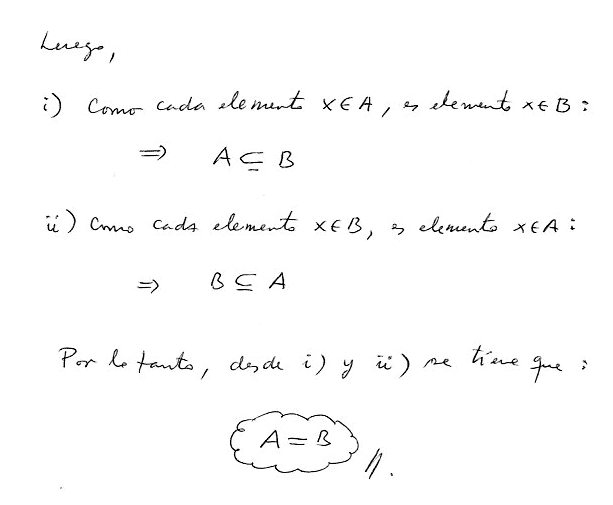 Luego,
i) Como cada elemento x ∈ A, es elemento x ∈ B :
⇒ A ⊆ B
ii) Como cada elemento x ∈ B, es elemento x ∈ A :
⇒ B ⊆ A
Por lo tanto, desde i) y ii) se tiene que :
A = B //.